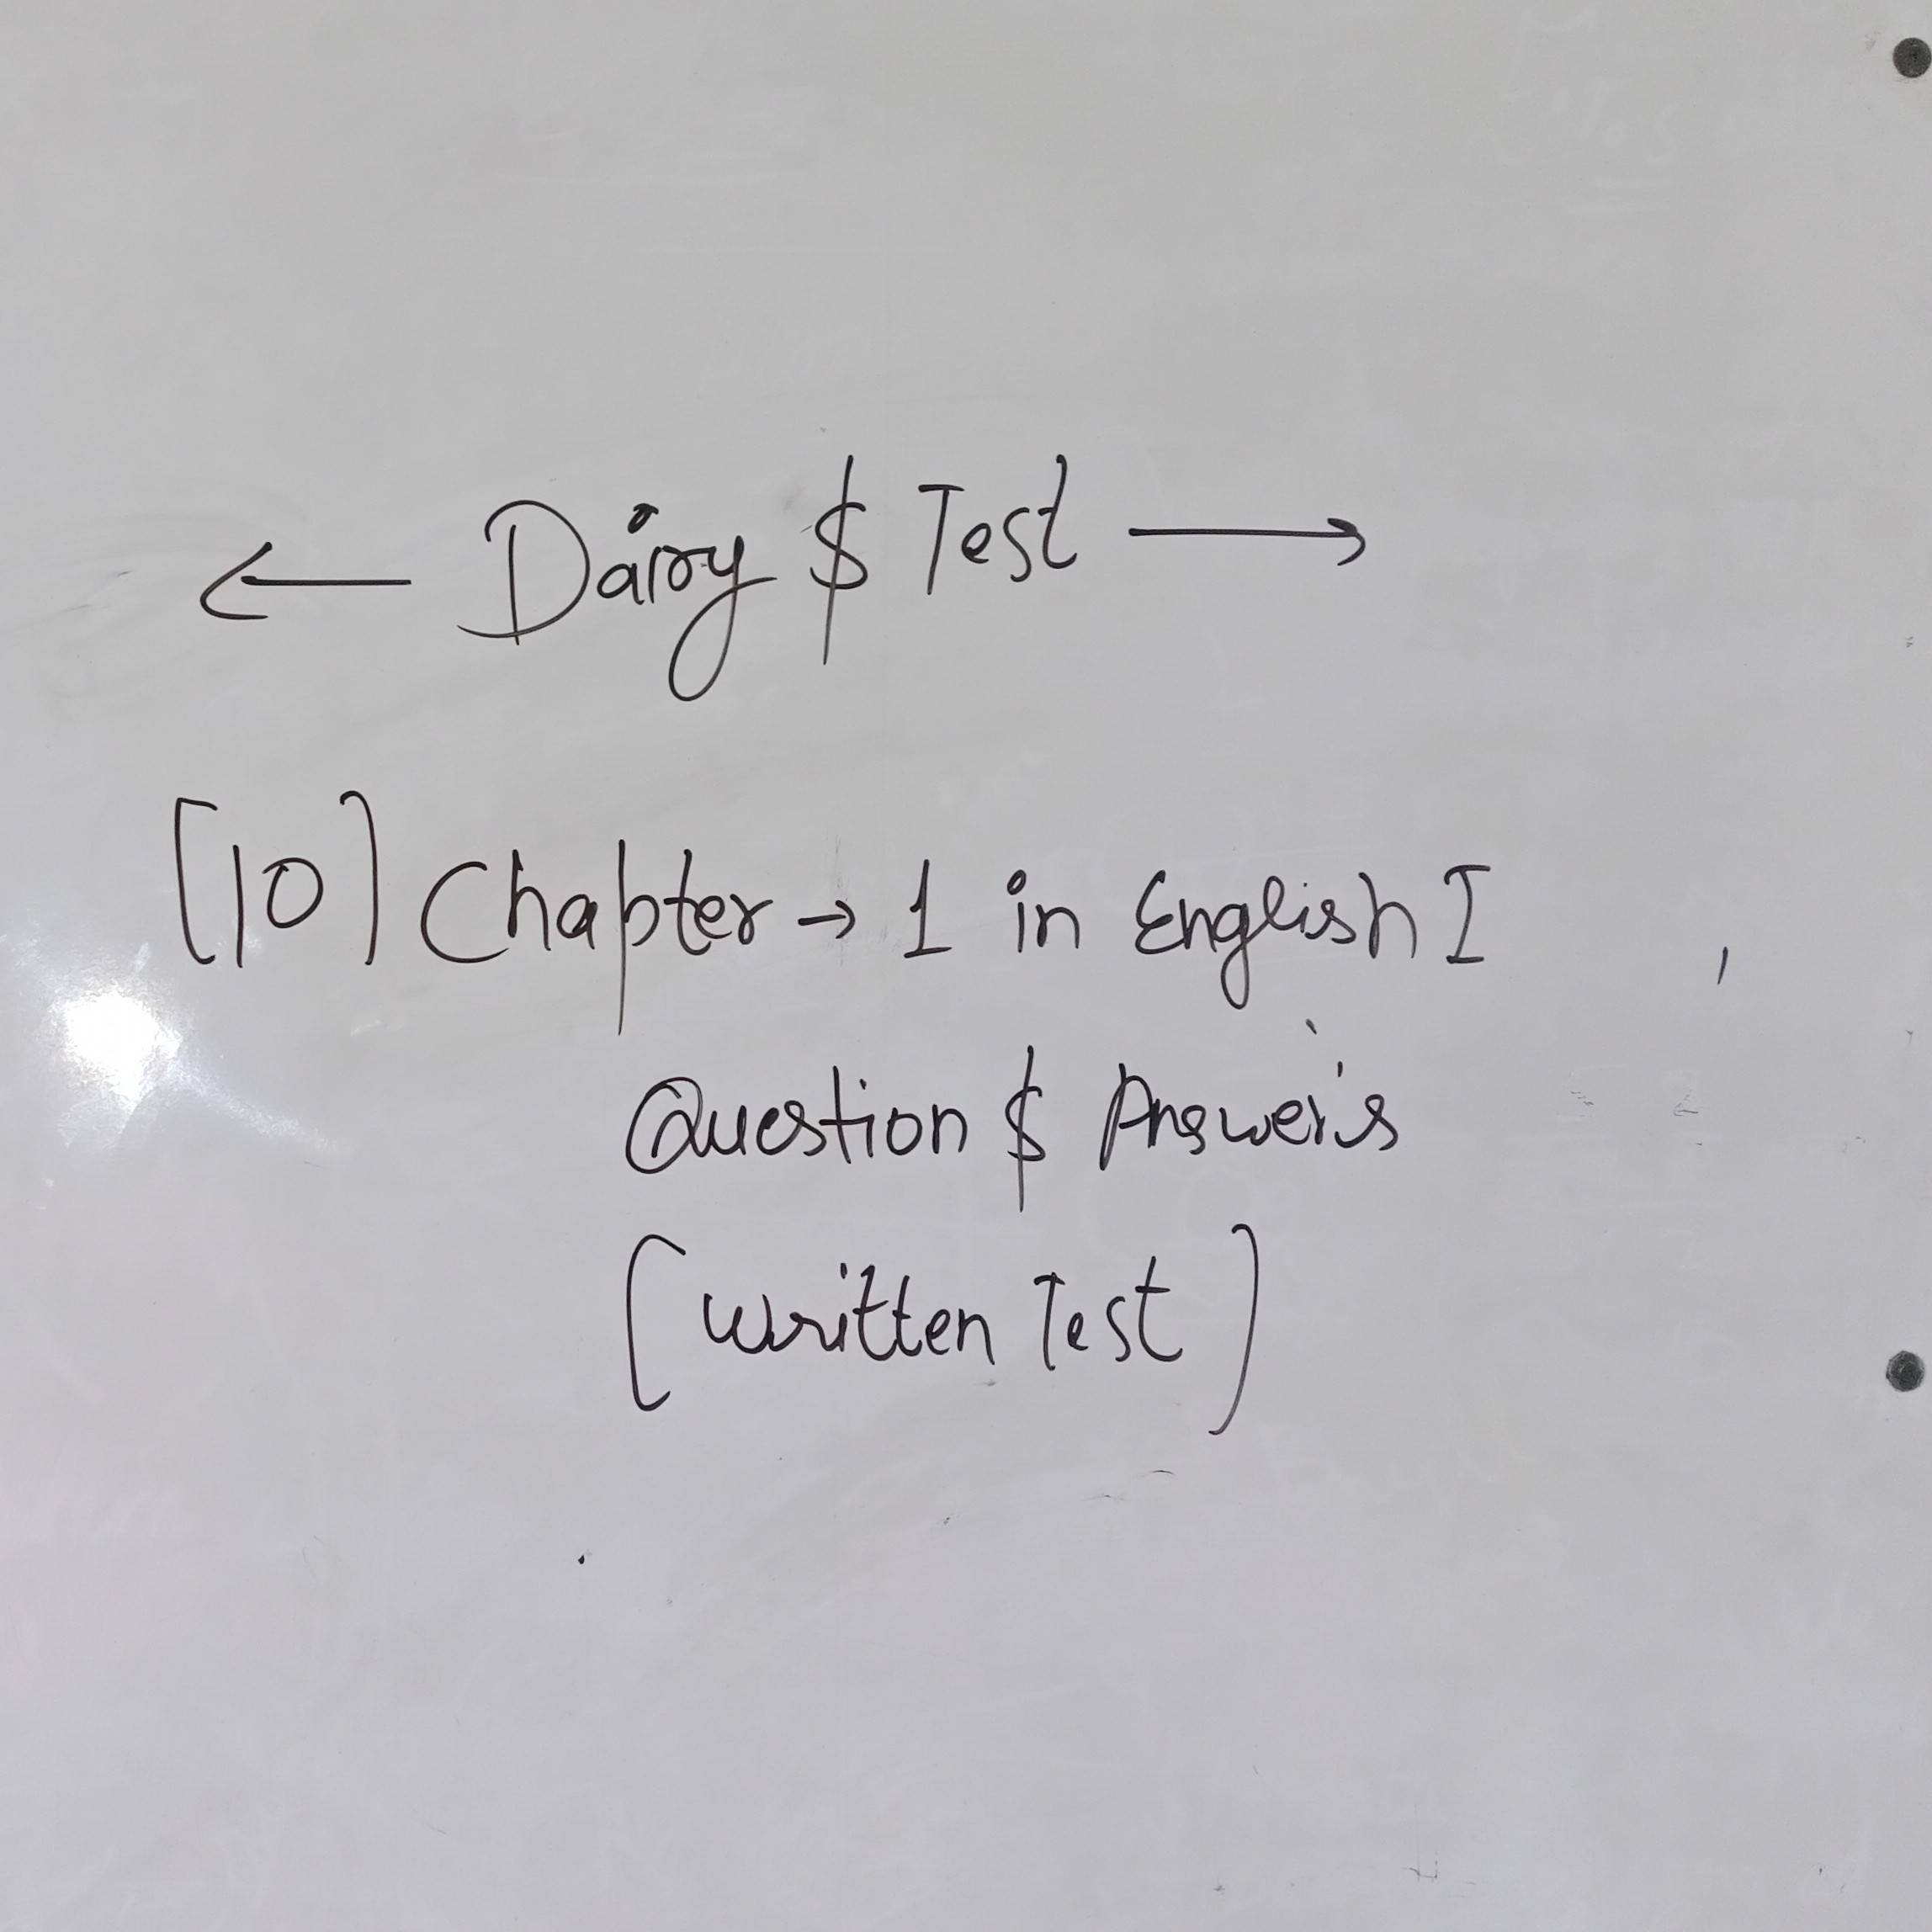 ← Dairy $ Test →
[10] Chapter → 1 in English I
Question $ Answer's
[Written Test]